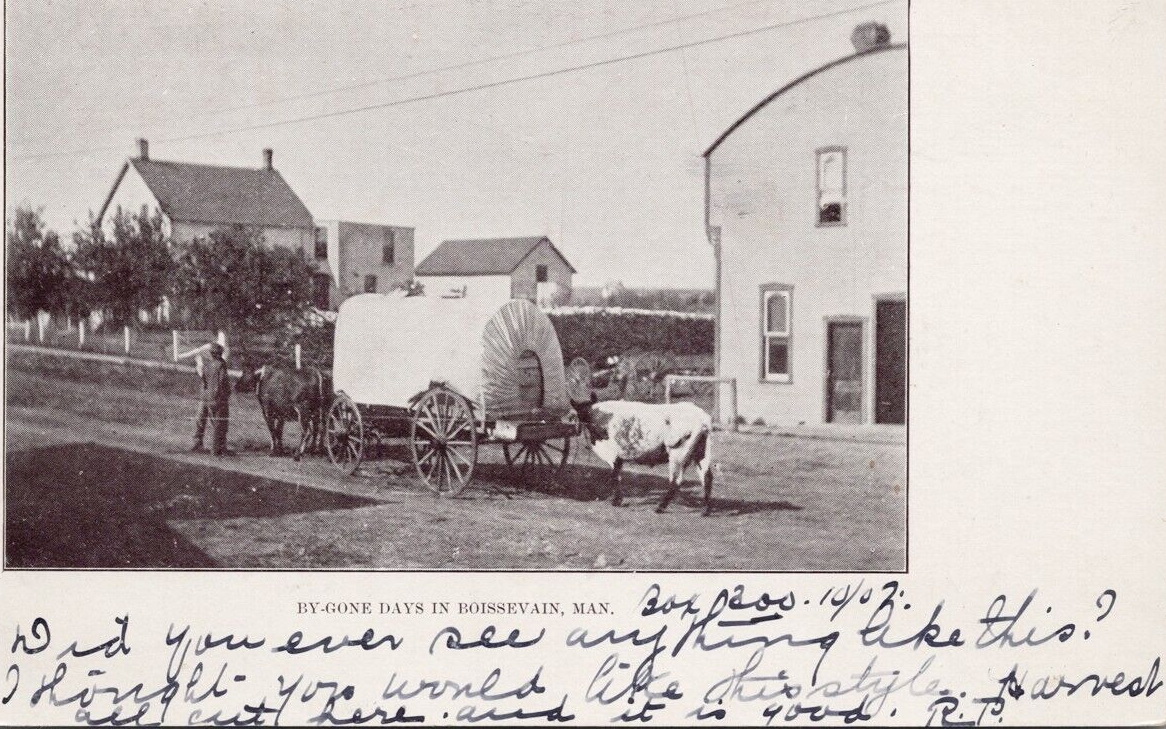 BY-GONE DAYS IN BOISSEVAIN, MAN. Box 200. 10/07.
Did you ever see anything like this?
I thought you would like this style. Harvest
all cut here and it is good. R.P.